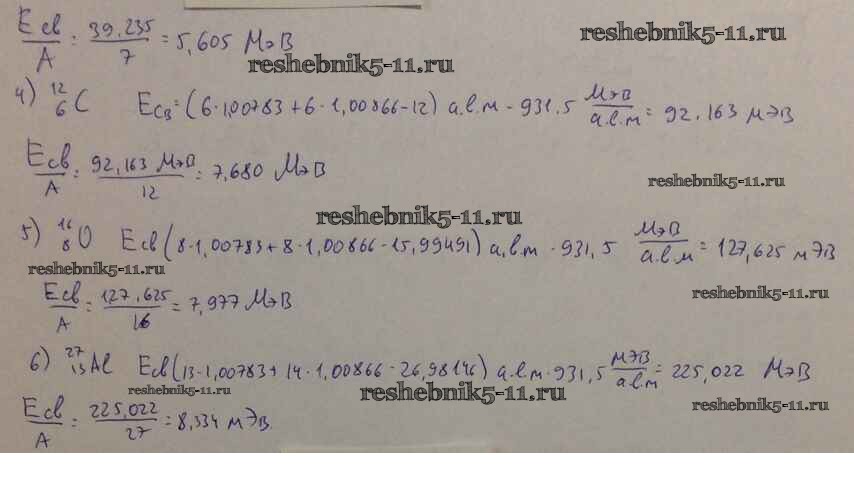 Eсв/A = 39,235/7 = 5,605 МэВ
reshebnik5-11.ru
reshebnik5-11.ru
4) ¹²₆C Eсв = (6·1,00783+6·1,00866-12) а.е.м · 931.5 МэВ/а.е.м = 92.163 мэВ
Eсв/A = 92,163 МэВ/12 = 7,680 МэВ
reshebnik5-11.ru
reshebnik5-11.ru
5) ¹⁶₈O Eсв (8·1,00783+8·1,00866-15,99491) а.е.м · 931,5 МэВ/а.е.м = 127,625 мэВ
reshebnik5-11.ru
reshebnik5-11.ru
Eсв/A = 127,625/16 = 7,977 МэВ
6) ²⁷₁₃Al Eсв (13·1,00783+14·1,00866-26,98146) а.е.м · 931,5 МэВ/а.е.м = 225,022 МэВ
reshebnik5-11.ru
reshebnik5-11.ru
reshebnik5-11.ru
Eсв/A = 225,022/27 = 8,334 мэВ.